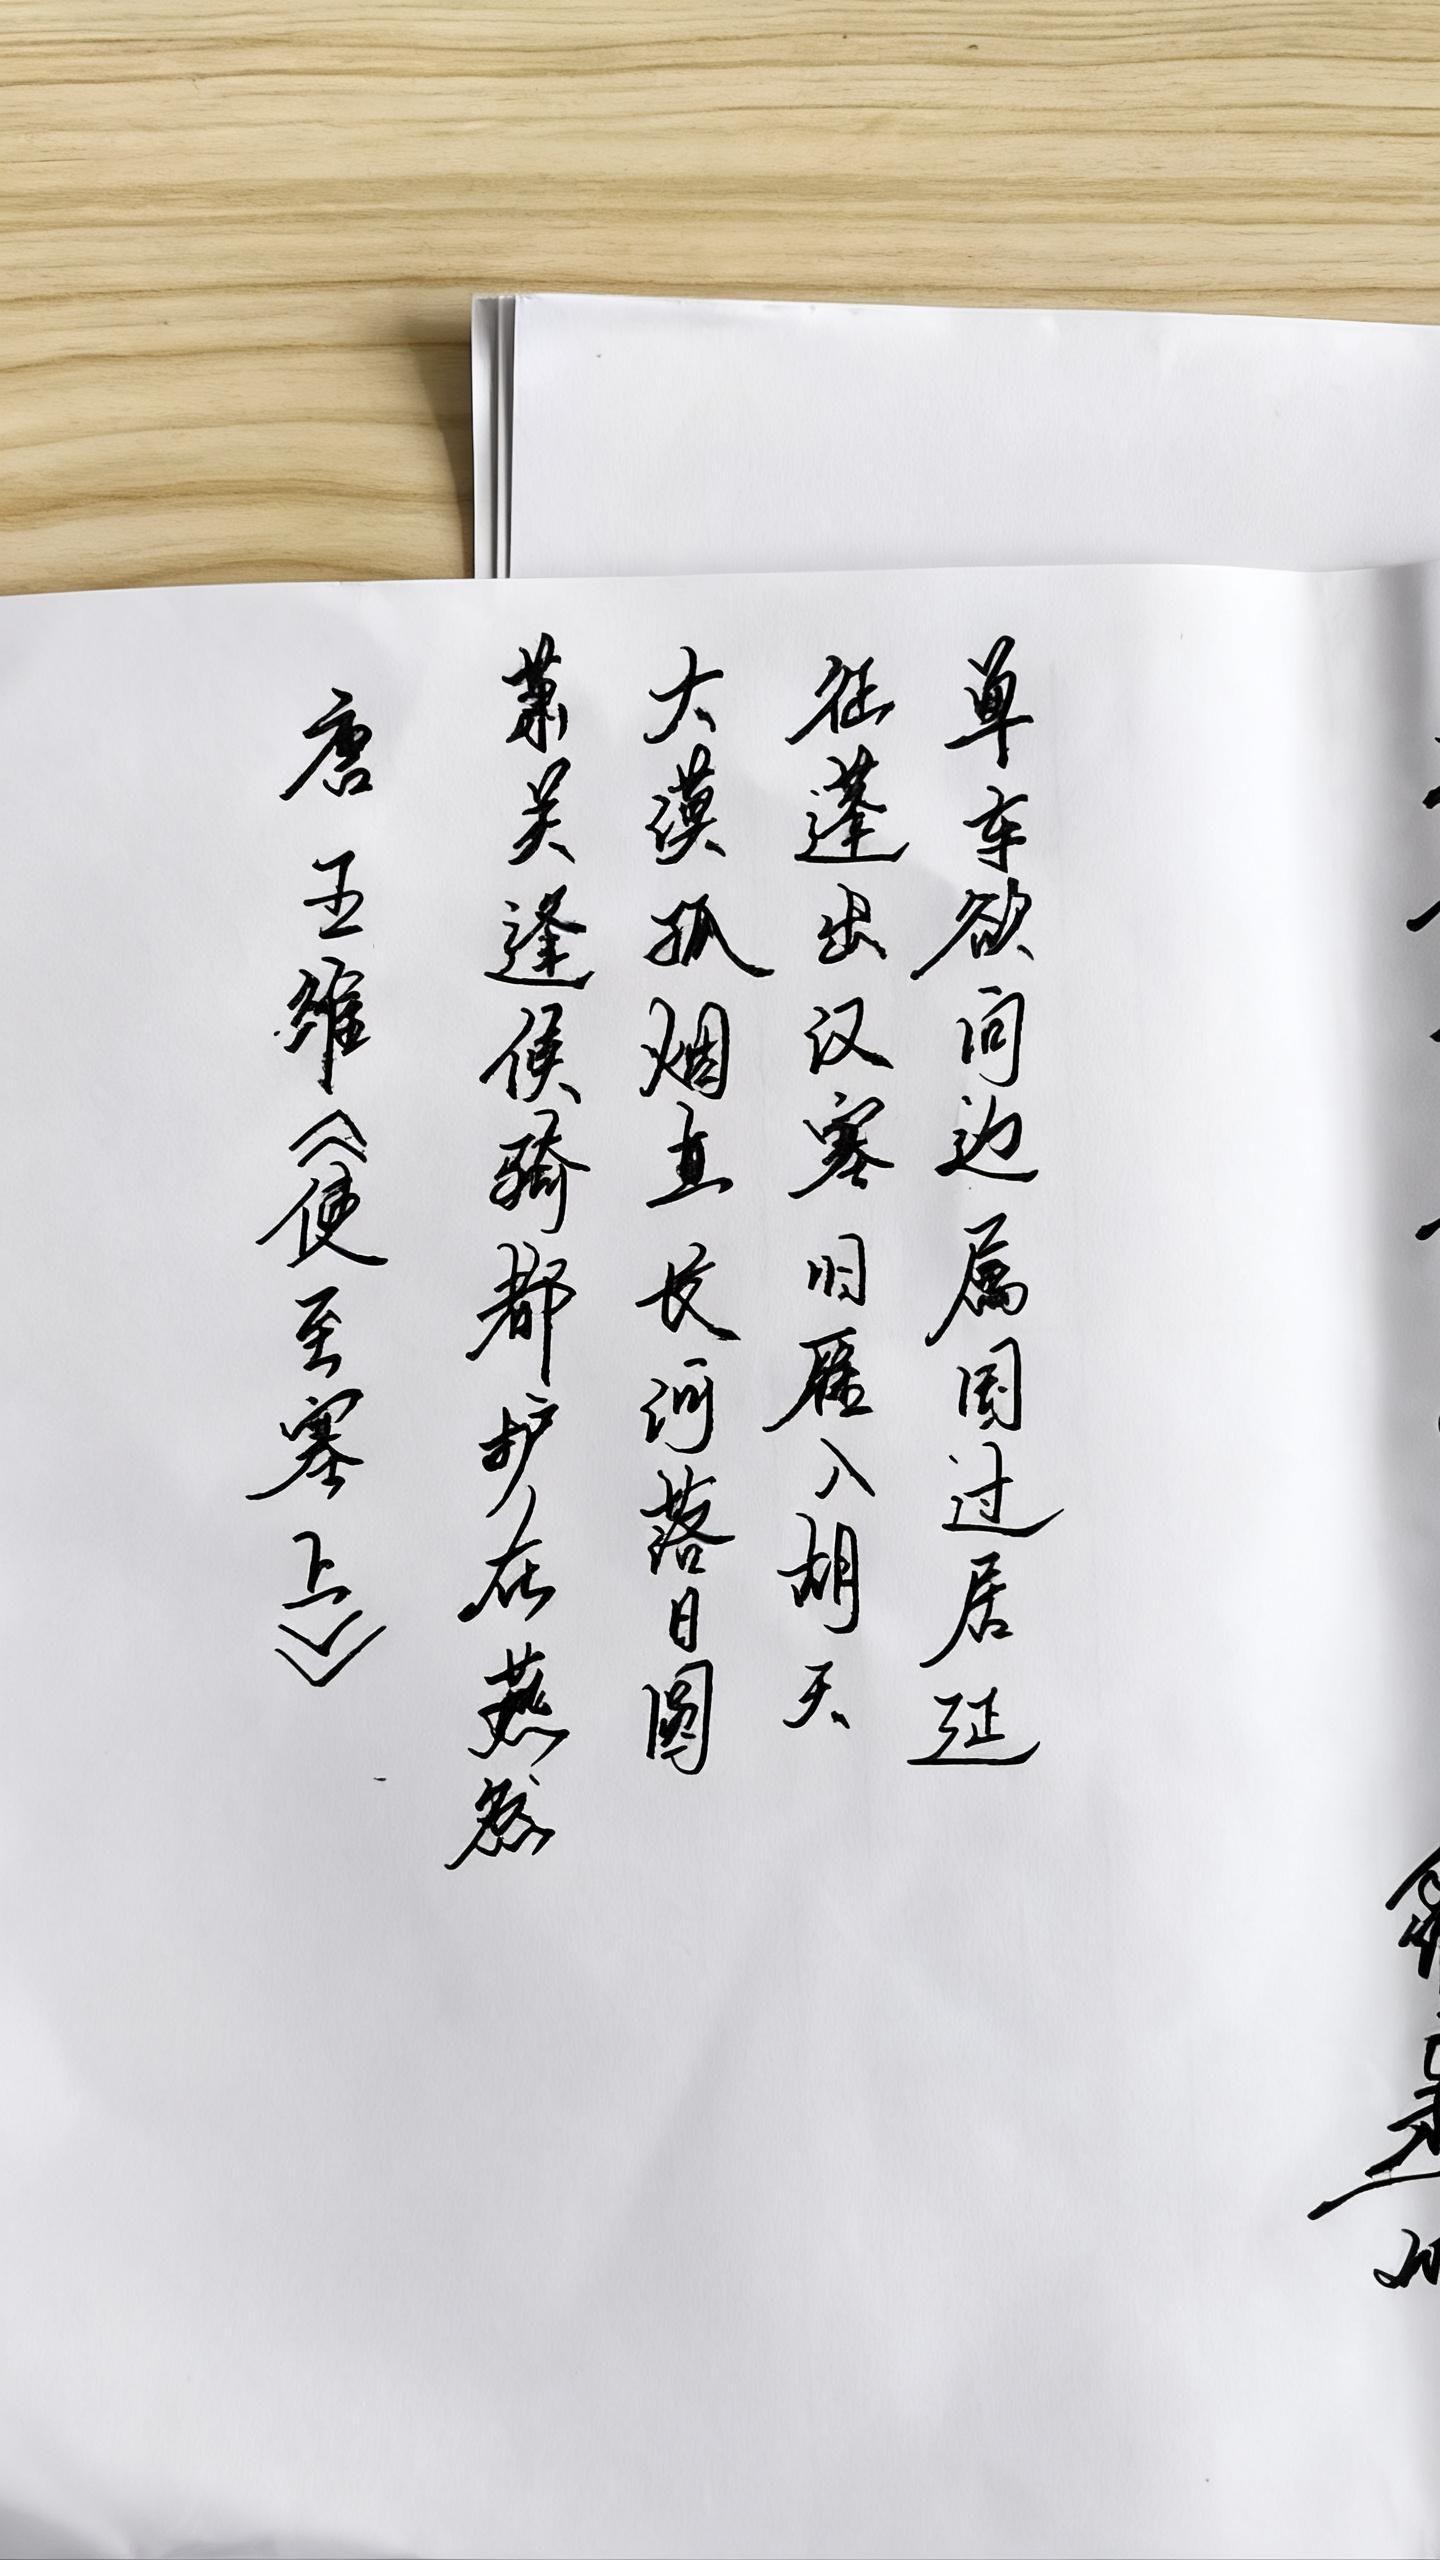 单车欲问边属国过居延
征蓬出汉塞旧雁入胡天
大漠孤烟直长河落日圆
萧关逢候骑都护在燕然
唐 王维《使至塞上》